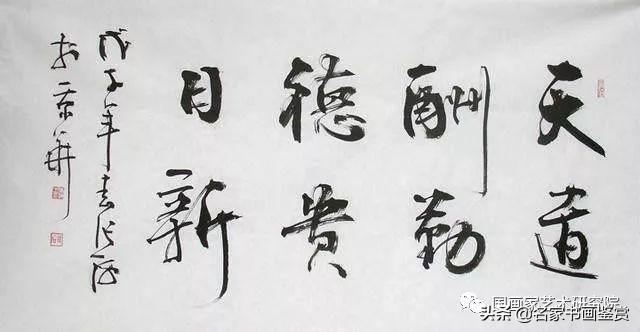 天道
酬勤
德貴
日新
戊子年
於京華
国画家艺术研究院
头条 @名家书画鉴赏